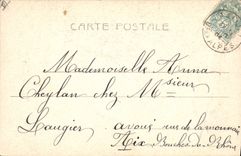 CARTE POSTALE
Mademoiselle Anna
Cheylan chez Monsieur
Laugier avoué rue de la monnaie
Aix Bouches du Rhône